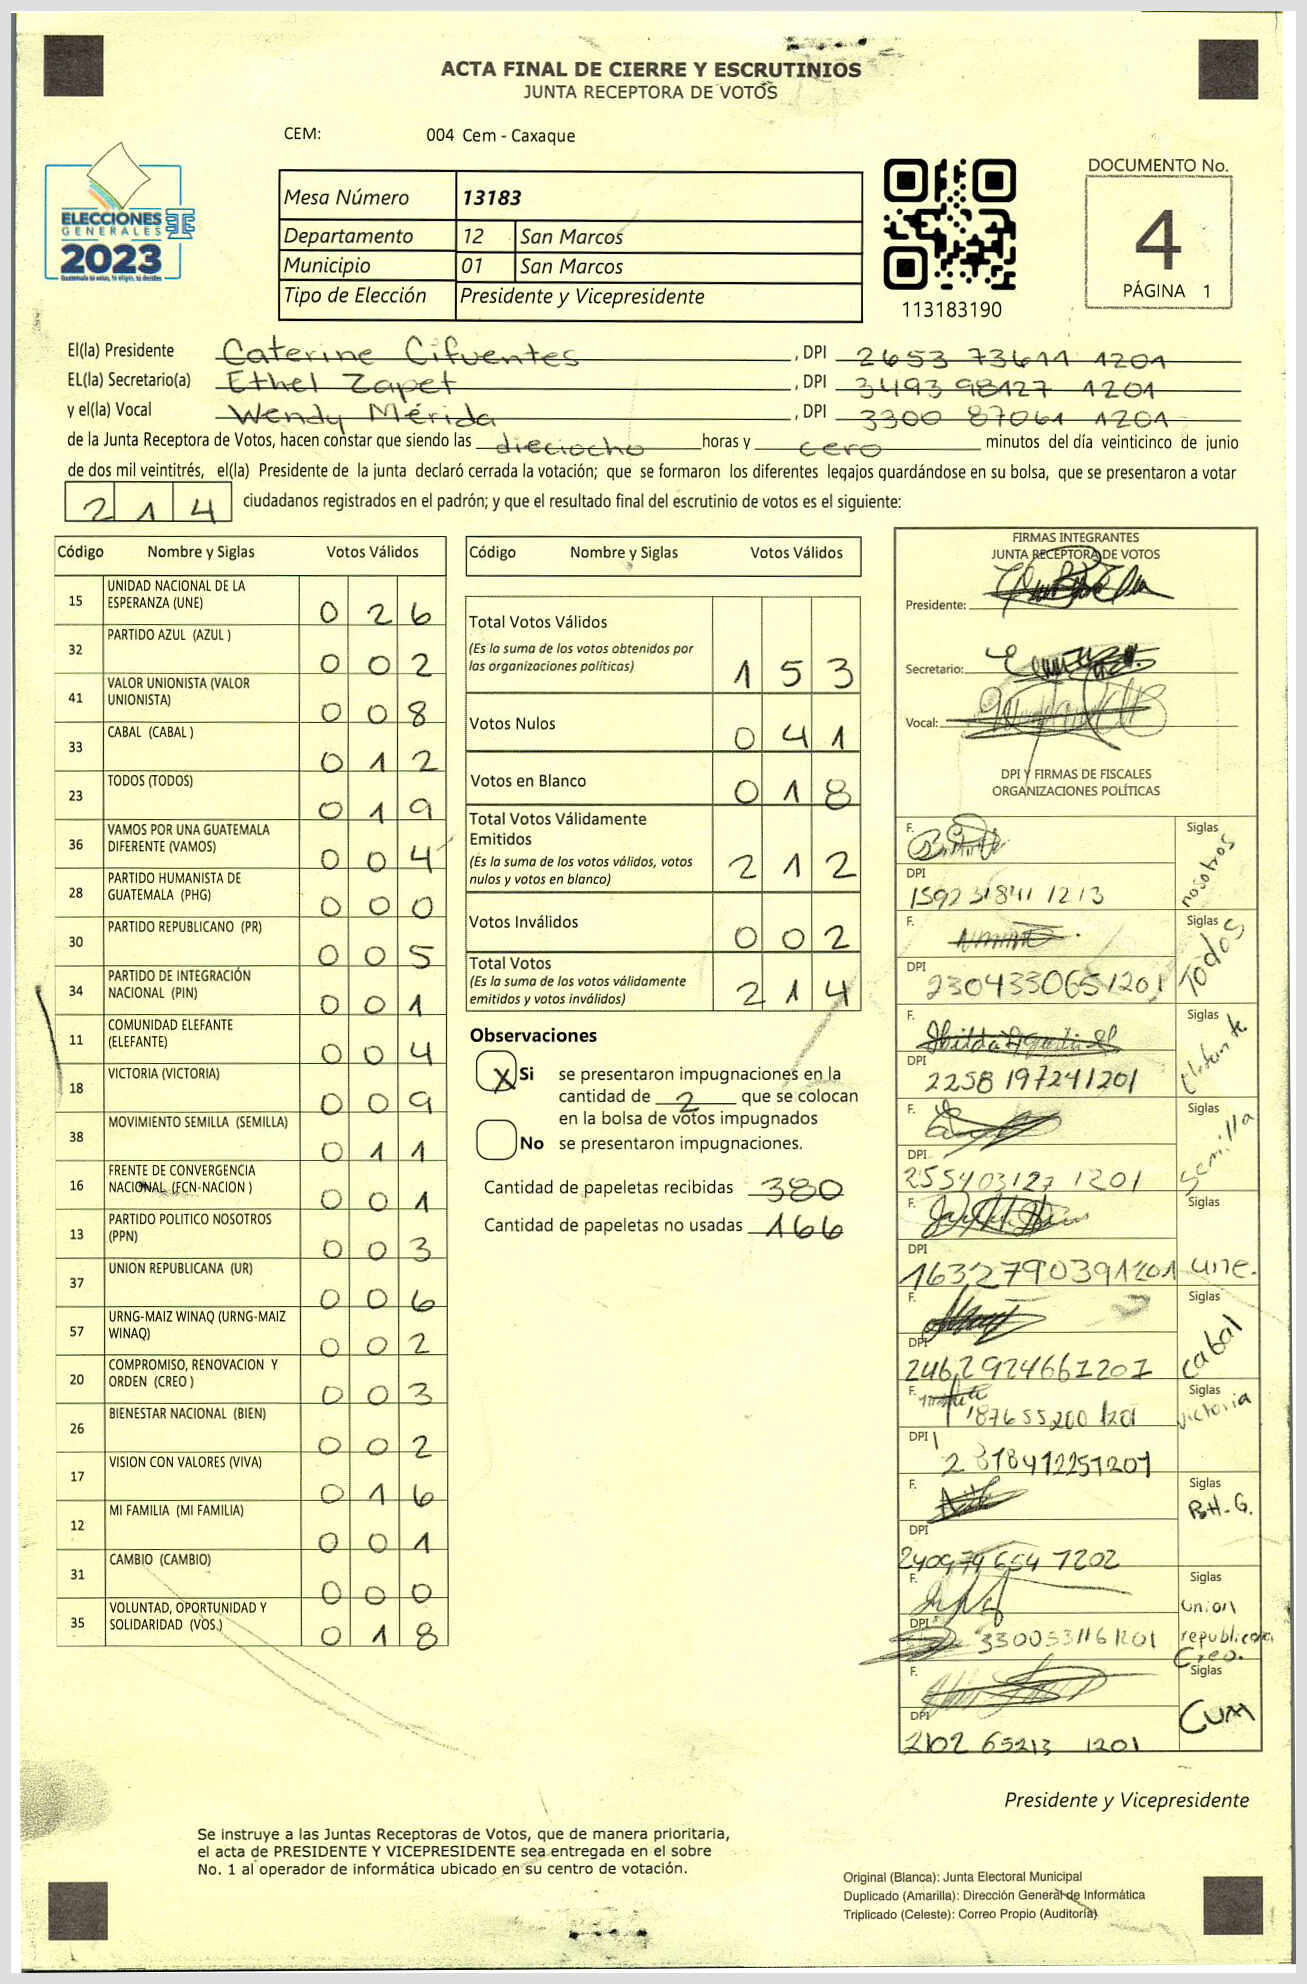 ACTA FINAL DE CIERRE Y ESCRUTINIOS
JUNTA RECEPTORA DE VOTOS
CEM: 004 Cem - Caxaque
ELECCIONES
GENERALES
2023
Mesa Número 13183
Departamento 12 San Marcos
Municipio 01 San Marcos
Tipo de Elección Presidente y Vicepresidente
113183190
DOCUMENTO No.
4
PÁGINA 1
El(la) Presidente Caterine Cifuentes , DPI 2653 73611 1201
EL(la) Secretario(a) Ethel Zapet , DPI 3493 98127 1201
y el(la) Vocal Wendy Mérida , DPI 3300 87061 1201
de la Junta Receptora de Votos, hacen constar que siendo las dieciocho horas y cero minutos del día veinticinco de junio
de dos mil veintitrés, el(la) Presidente de la junta declaró cerrada la votación; que se formaron los diferentes legajos guardándose en su bolsa, que se presentaron a votar
214 ciudadanos registrados en el padrón; y que el resultado final del escrutinio de votos es el siguiente:
Código Nombre y Siglas Votos Válidos
15 UNIDAD NACIONAL DE LA ESPERANZA (UNE) 026
32 PARTIDO AZUL (AZUL ) 002
41 VALOR UNIONISTA (VALOR UNIONISTA) 008
33 CABAL (CABAL ) 012
23 TODOS (TODOS) 019
36 VAMOS POR UNA GUATEMALA DIFERENTE (VAMOS) 004
28 PARTIDO HUMANISTA DE GUATEMALA (PHG) 000
30 PARTIDO REPUBLICANO (PR) 005
34 PARTIDO DE INTEGRACIÓN NACIONAL (PIN) 001
11 COMUNIDAD ELEFANTE (ELEFANTE) 004
18 VICTORIA (VICTORIA) 009
38 MOVIMIENTO SEMILLA (SEMILLA) 011
16 FRENTE DE CONVERGENCIA NACIONAL (FCN-NACION ) 001
13 PARTIDO POLITICO NOSOTROS (PPN) 003
37 UNION REPUBLICANA (UR) 006
57 URNG-MAIZ WINAQ (URNG-MAIZ WINAQ) 002
20 COMPROMISO, RENOVACION Y ORDEN (CREO ) 003
26 BIENESTAR NACIONAL (BIEN) 002
17 VISION CON VALORES (VIVA) 016
12 MI FAMILIA (MI FAMILIA) 001
31 CAMBIO (CAMBIO) 000
35 VOLUNTAD, OPORTUNIDAD Y SOLIDARIDAD (VOS.) 018
Código Nombre y Siglas Votos Válidos
Total Votos Válidos
(Es la suma de los votos obtenidos por
las organizaciones políticas) 153
Votos Nulos 041
Votos en Blanco 018
Total Votos Válidamente
Emitidos
(Es la suma de los votos válidos, votos
nulos y votos en blanco) 212
Votos Inválidos 002
Total Votos
(Es la suma de los votos válidamente
emitidos y votos inválidos) 214
Observaciones
X Si se presentaron impugnaciones en la
cantidad de 2 que se colocan
en la bolsa de votos impugnados
No se presentaron impugnaciones.
Cantidad de papeletas recibidas 380
Cantidad de papeletas no usadas 166
FIRMAS INTEGRANTES
JUNTA RECEPTORA DE VOTOS
Presidente:
Secretario:
Vocal:
DPI Y FIRMAS DE FISCALES
ORGANIZACIONES POLÍTICAS
F. Siglas nosotros
DPI 1592 31841 1213
F. Siglas Todos
DPI 2304330651201
F. Siglas Elefante
DPI 2258 197241201
F. Siglas Semilla
DPI 255403127 1201
F. Siglas une.
DPI 1632790391201
F. Siglas cabal
DPI 2462924661201
F. 187655200 1201 Siglas victoria
DPI 2318412251201
F. Siglas P.H-G.
DPI 240974654 1202
F. Siglas Union republicana
DPI 3300531161201 Creo.
F. Siglas CUM
DPI 2102 65213 1201
Presidente y Vicepresidente
Se instruye a las Juntas Receptoras de Votos, que de manera prioritaria,
el acta de PRESIDENTE Y VICEPRESIDENTE sea entregada en el sobre
No. 1 al operador de informática ubicado en su centro de votación.
Original (Blanca): Junta Electoral Municipal
Duplicado (Amarilla): Dirección General de Informática
Triplicado (Celeste): Correo Propio (Auditoría)